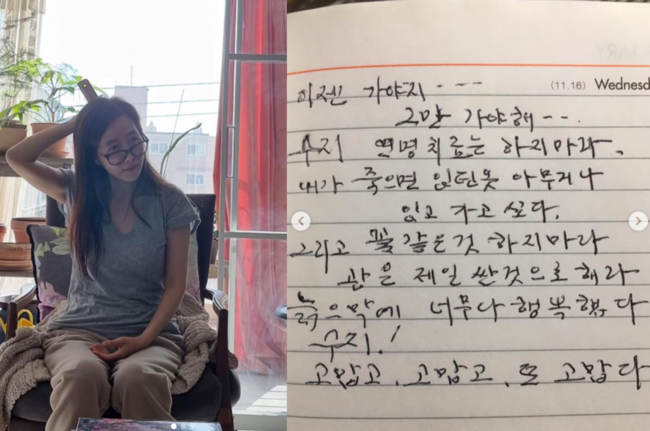 (11.16) Wednesd
이젠 가야지---
그만 가야해--.
수지 연명치료는 하지마라.
내가 죽으면 입던옷 아무거나
입고 가고 싶다.
그리고 꽃 같은것 하지마라
관은 제일 싼것으로 해라
늙으막에 너무나 행복했다
수지!
고맙고, 고맙고, 또 고맙다